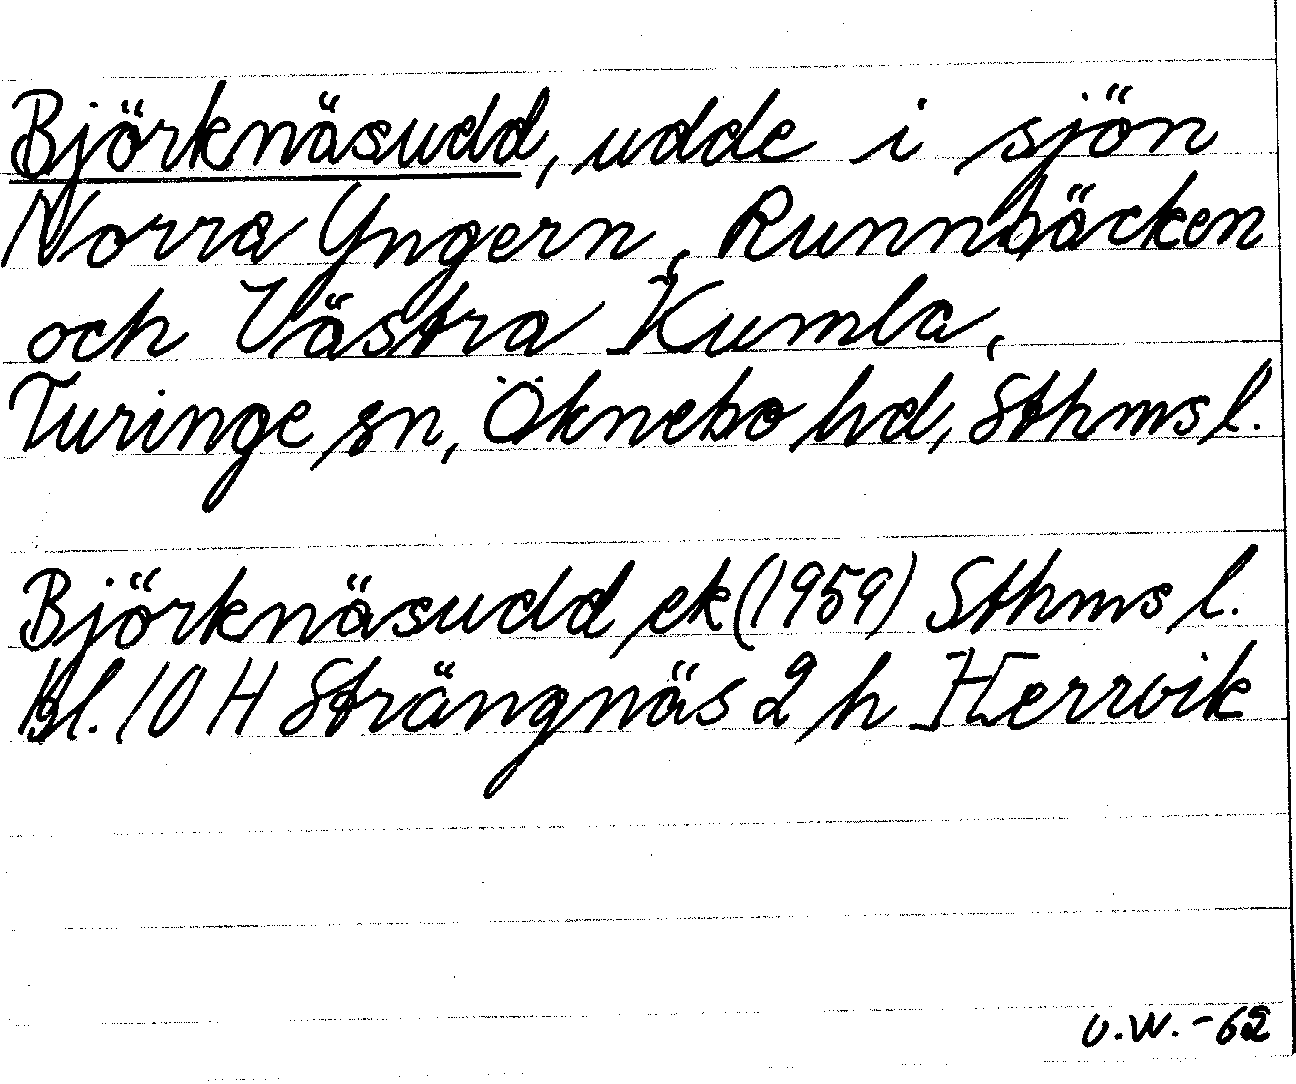 Björknäsudd, udde i sjön
Norra Yngern, Runnbäcken
och Västra Kumla,
Turinge sn, Öknebo hd, Sthms l.
Björknäsudd ek (1959) Sthms l.
Bl. 10 H Strängnäs 2 h Herrvik
U.W. -62